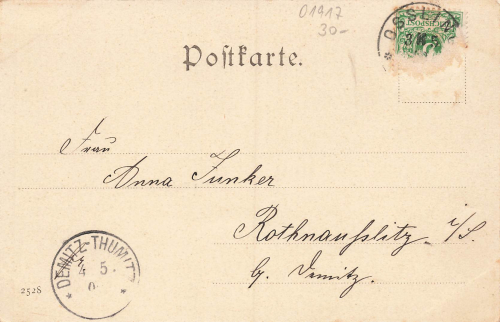 01917
30-
OSSLING
Postkarte.
Frau
Anna Junker
Rothnausslitz i/S.
b. Demitz.
DEMITZ-THUMITZ
4 5.
2528